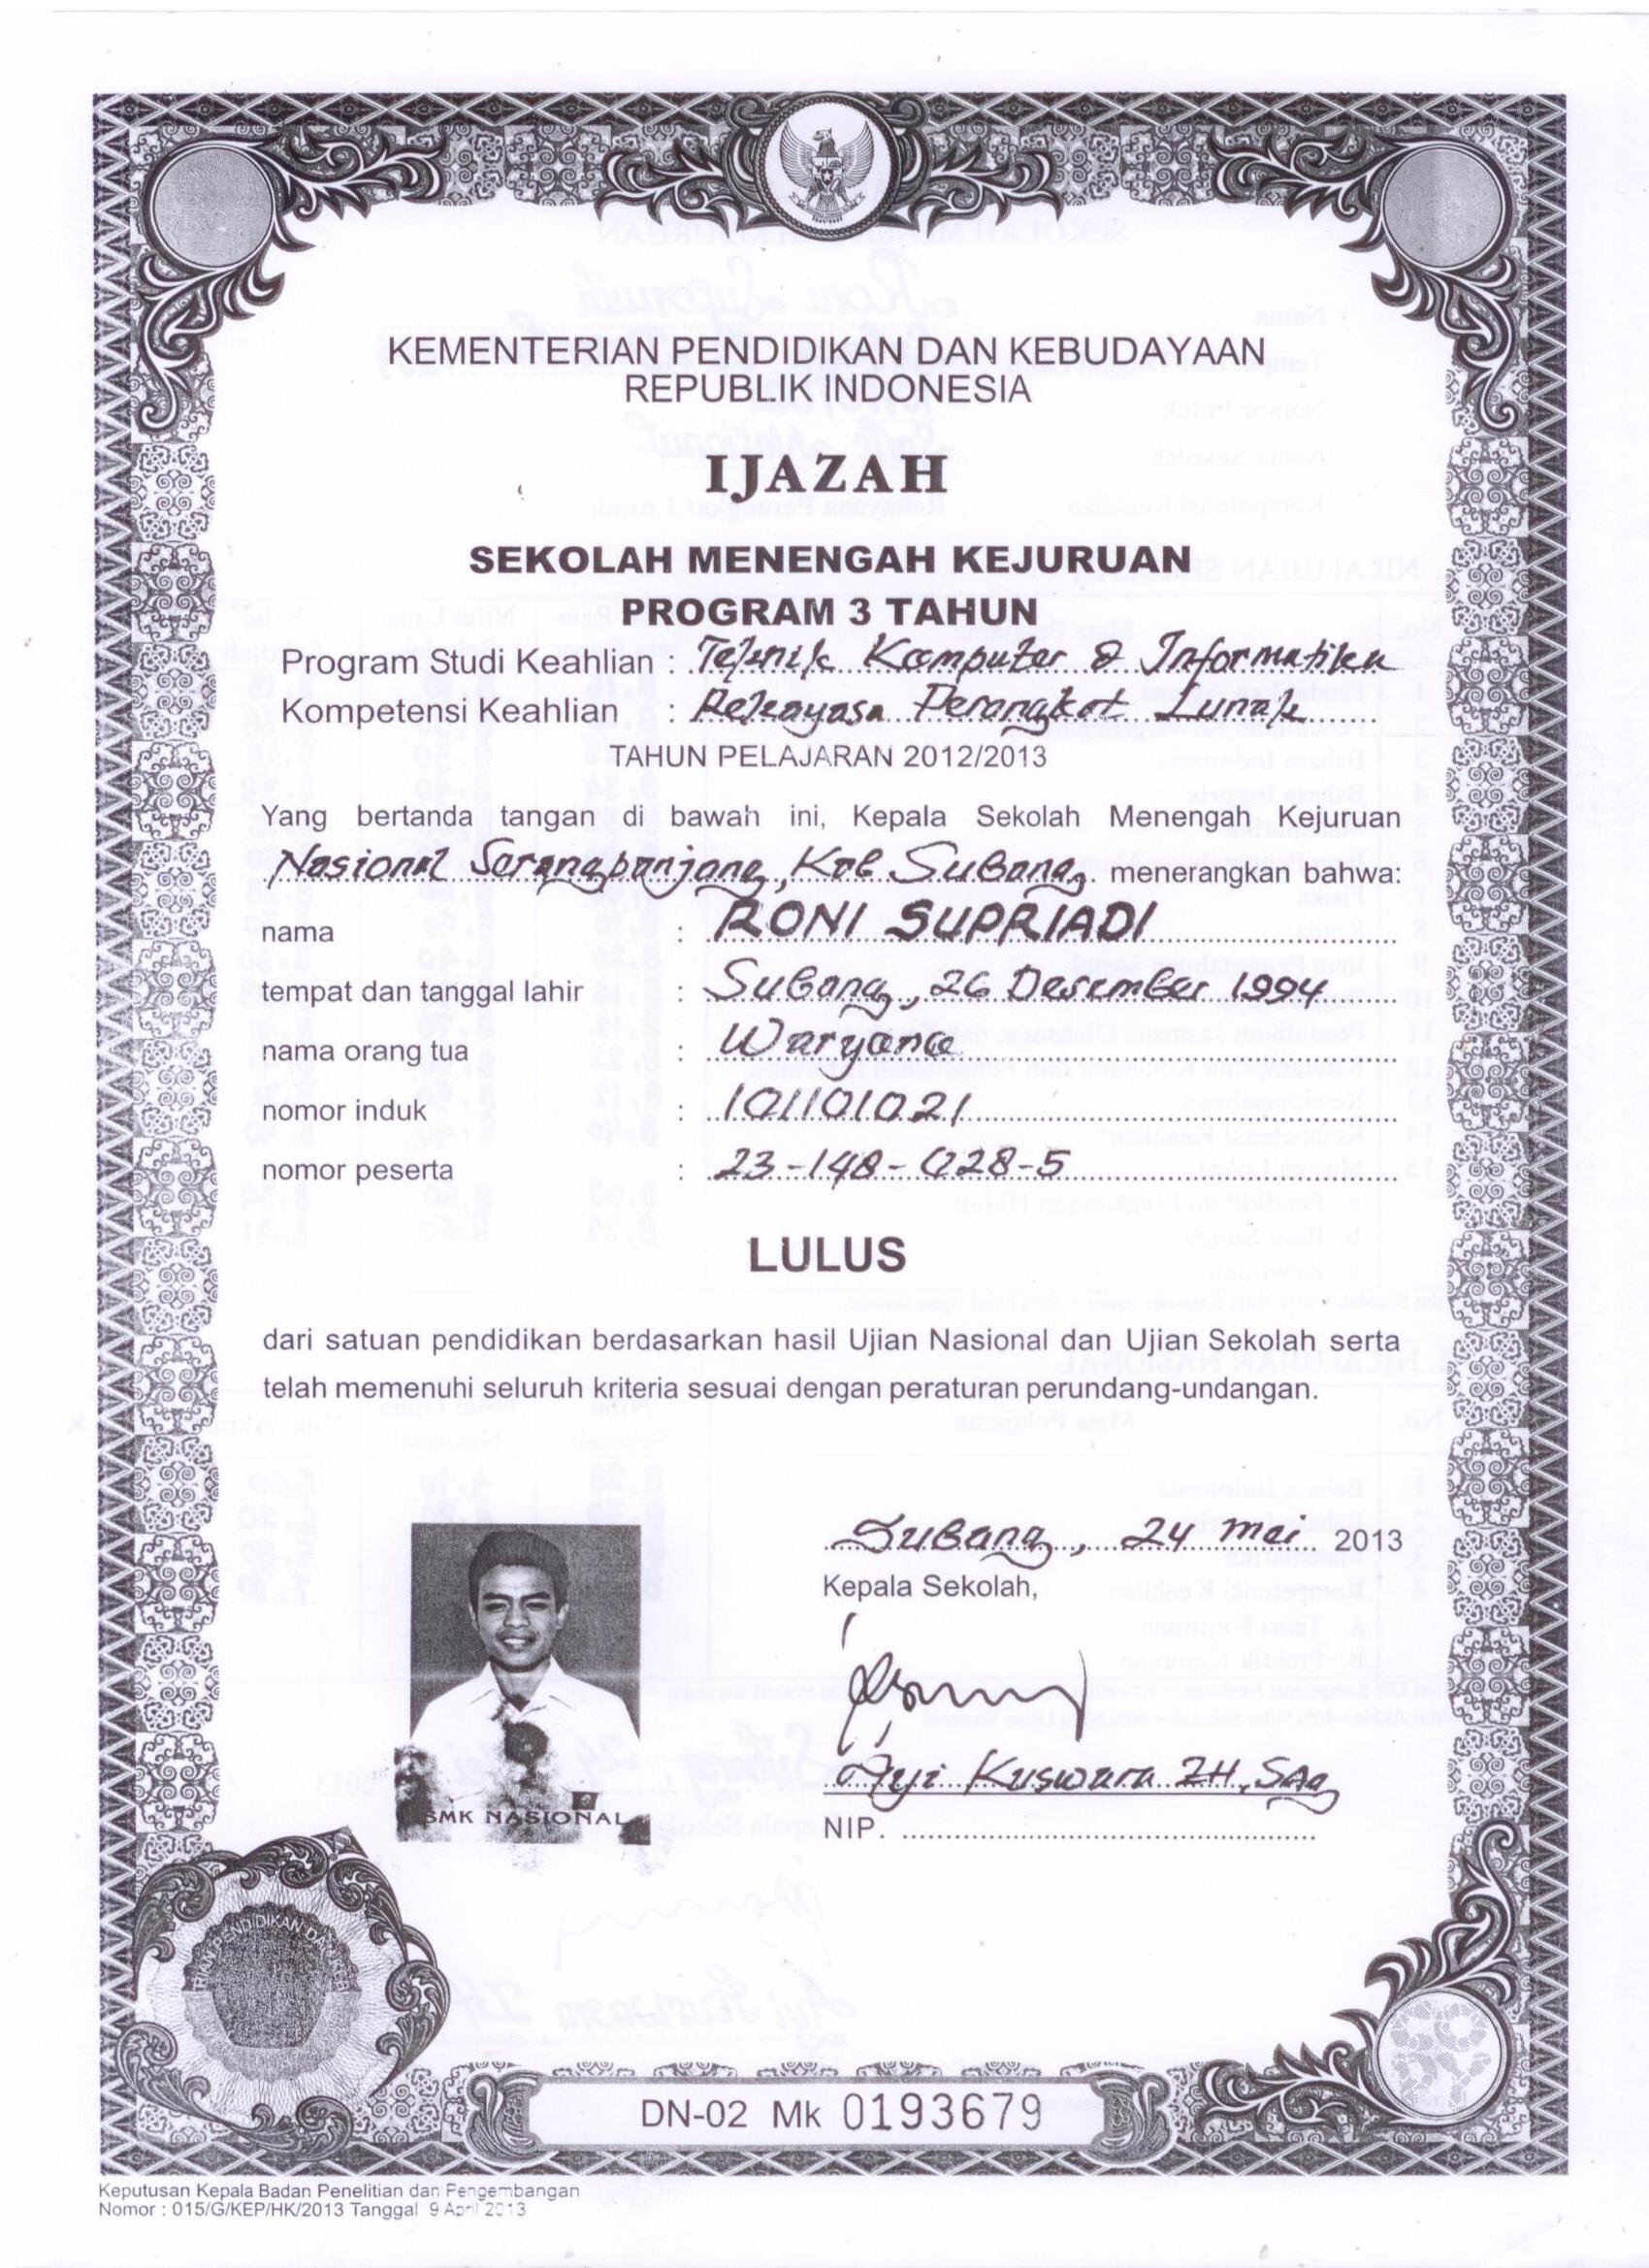 KEMENTERIAN PENDIDIKAN DAN KEBUDAYAAN
REPUBLIK INDONESIA
IJAZAH
SEKOLAH MENENGAH KEJURUAN
PROGRAM 3 TAHUN
Program Studi Keahlian : Teknik Komputer & Informatika
Kompetensi Keahlian : Rekayasa Perangkat Lunak
TAHUN PELAJARAN 2012/2013
Yang bertanda tangan di bawah ini, Kepala Sekolah Menengah Kejuruan
Nasional Serangpanjang, Kab Subang menerangkan bahwa:
nama : RONI SUPRIADI
tempat dan tanggal lahir : Subang, 26 Desember 1994
nama orang tua : Waryono
nomor induk : 101101021
nomor peserta : 23-148-028-5
LULUS
dari satuan pendidikan berdasarkan hasil Ujian Nasional dan Ujian Sekolah serta
telah memenuhi seluruh kriteria sesuai dengan peraturan perundang-undangan.
Subang, 24 Mei 2013
Kepala Sekolah,
Ayi Kuswara ZH, SAg
NIP.
SMK NASIONAL
DN-02 Mk 0193679
Keputusan Kepala Badan Penelitian dan Pengembangan
Nomor : 015/G/KEP/HK/2013 Tanggal 9 April 2013